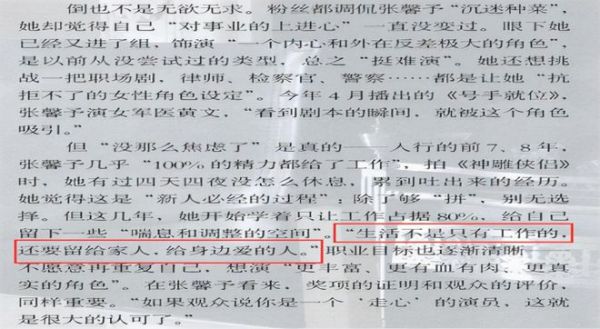 倒也不是无欲无求。粉丝都调侃张馨予“沉迷种菜”，
她却觉得自己“对事业的上进心”一直没变过。眼下她
已经又进了组，饰演“一个内心和外在反差极大的角色”，
是以前从没尝试过的类型，总之“挺难演”。她还想挑
战一把职场剧，律师、检察官、警察……都是让她“抗
拒不了的女性角色设定”。今年4月播出的《号手就位》，
张馨予演女军医黄文，“看到剧本的瞬间，就被这个角色
吸引。”
但“没那么焦虑了”是真的——入行的前7、8年，
张馨予几乎“100%的精力都给了工作”，拍《神雕侠侣》
时，她有过四天四夜没怎么休息，累到吐出来的经历。
她觉得这是“新人必经的过程”；除了够“拼”，别无选
择。但这几年，她开始学着只让工作占据80%，给自己
留下一些“喘息和调整的空间”。“生活不是只有工作的，
还要留给家人，给身边爱的人。”职业目标也逐渐清晰——
不愿意再重复自己，想演“更丰富、更有血有肉、更真
实的角色”。在张馨予看来，奖项的证明和观众的评价，
同样重要。“如果观众说你是一个‘走心’的演员，这就
是很大的认可了。”